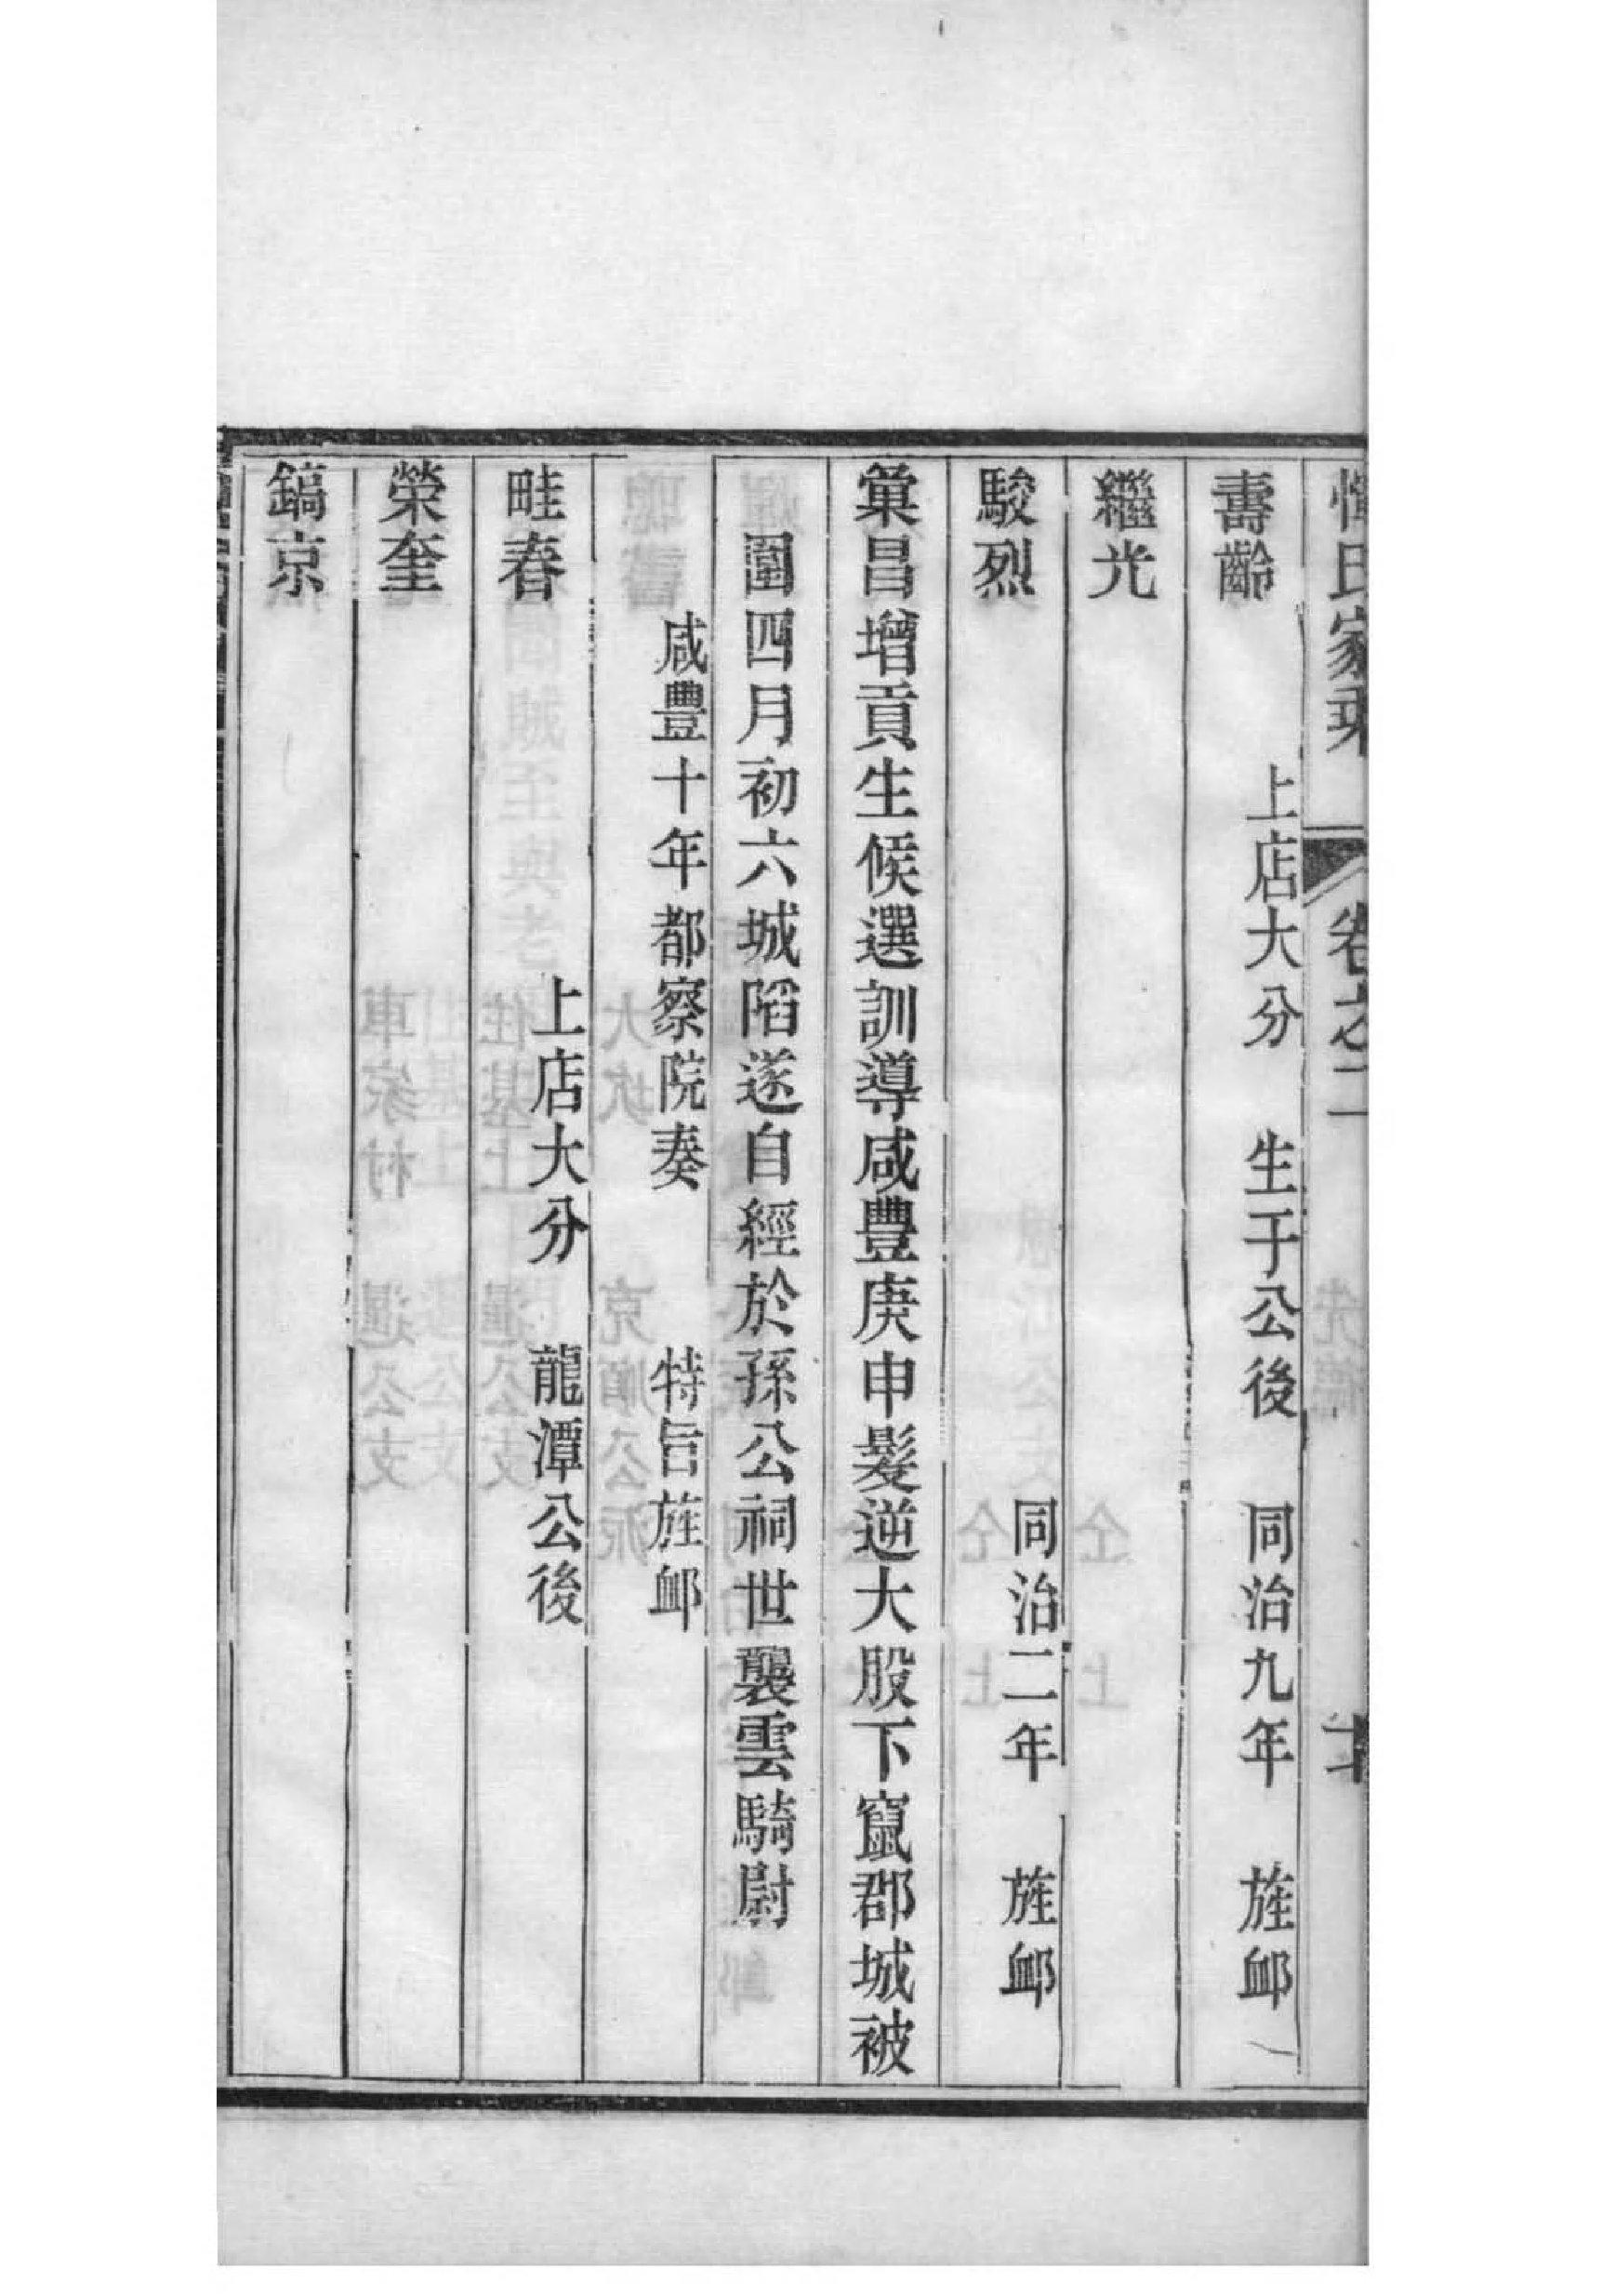 惲氏家乘 卷之二 十
壽齡 上店大分 生于公後 同治九年 旌卹
繼光
駿烈 同治二年 旌卹
彙昌增貢生候選訓導咸豐庚申髮逆大股下竄郡城被
圍四月初六城陷遂自經於孫公祠世襲雲騎尉
咸豐十年都察院奏 特旨旌卹
畦春 上店大分 龍潭公後
榮奎
鎬京